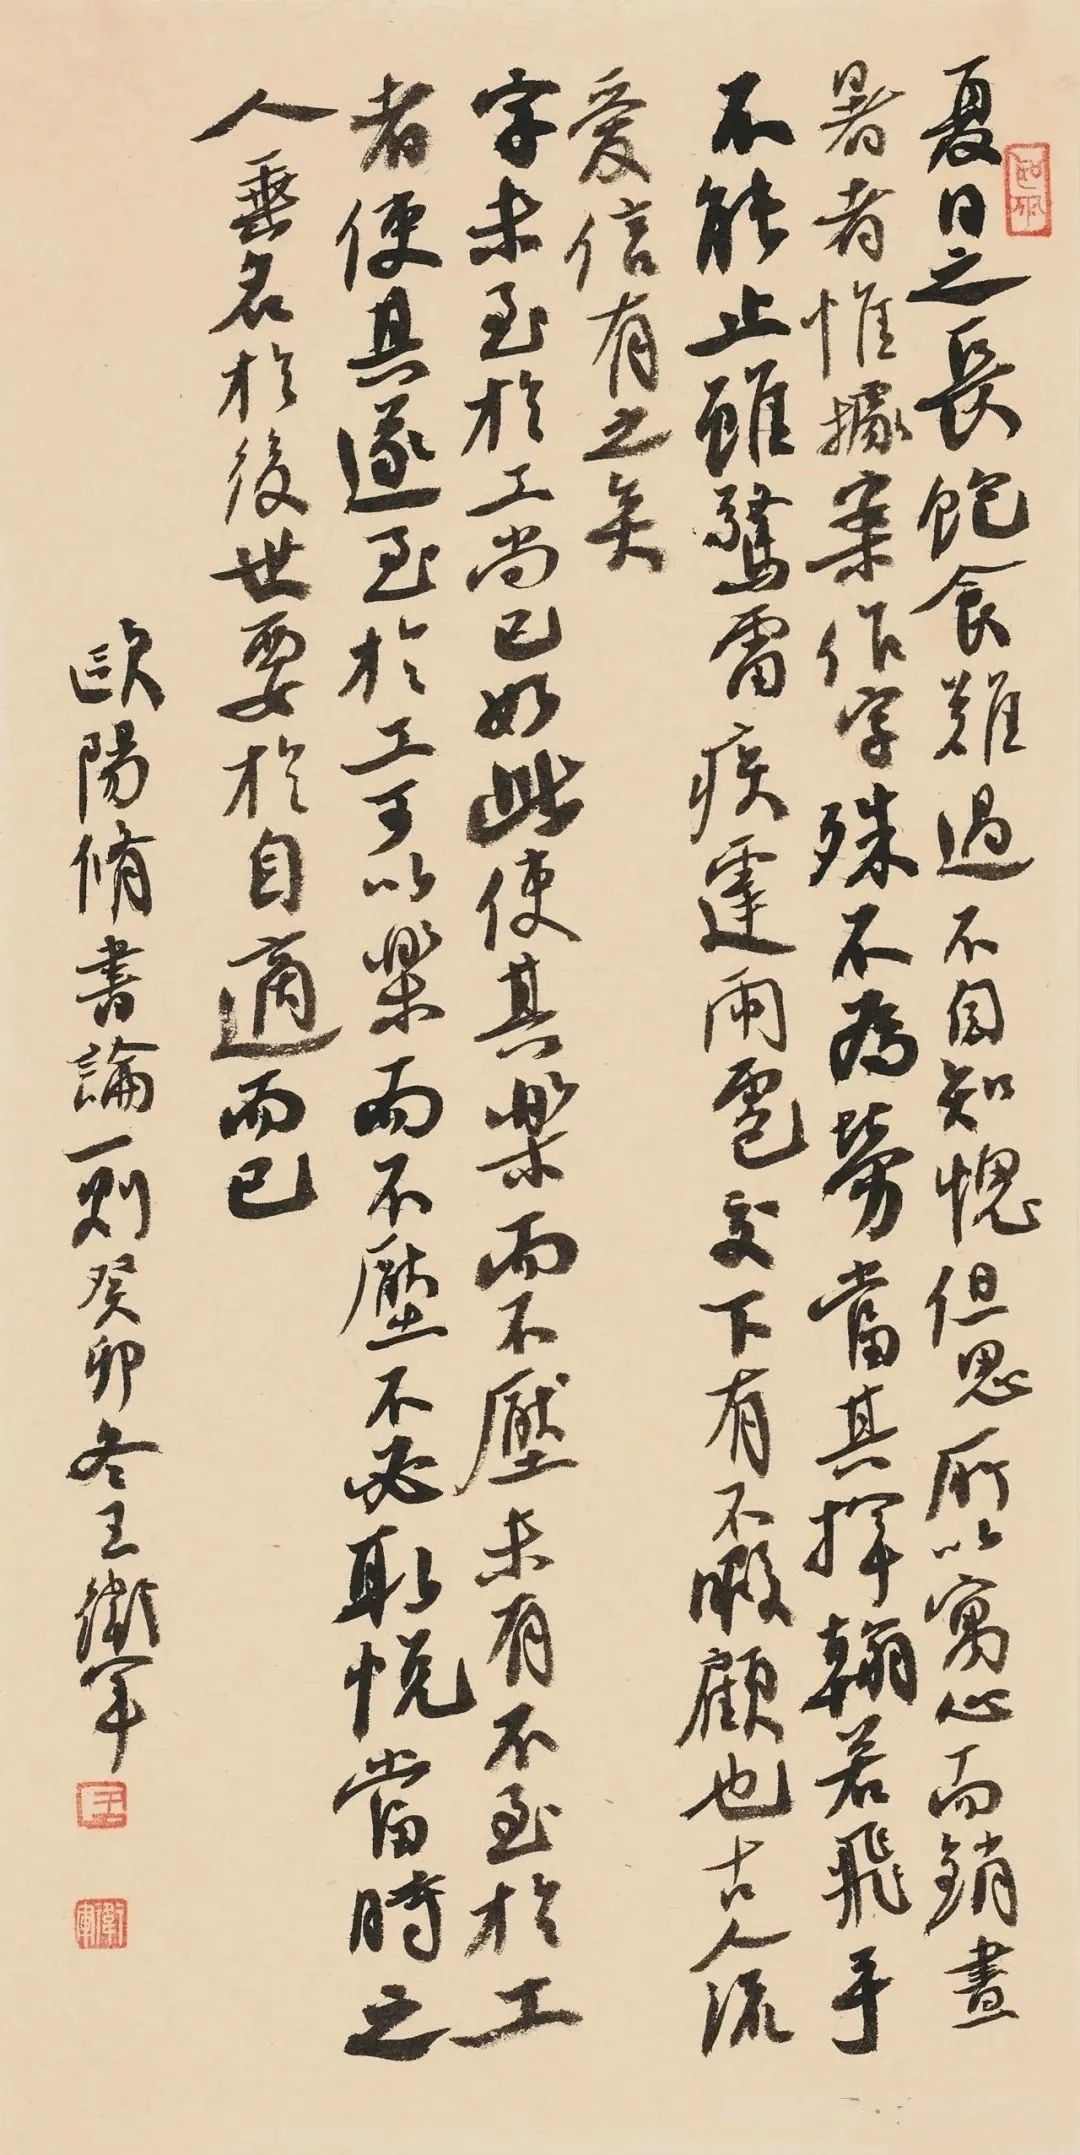 夏日之長飽食難過不自知愧但思所以寓心而銷晝
暑者惟據案作字殊不為勞當其揮翰若飛手
不能止雖驚雷疾霆雨雹交下有不暇顧也古人流
愛信有之矣
字未至於工尚已如此使其樂而不壓未有不至於工
者使其遂至於工可以樂而不壓不必取悅當時之
人垂名於後世要於自適而已
歐陽脩書論一則癸卯冬王衛軍
王
衛軍